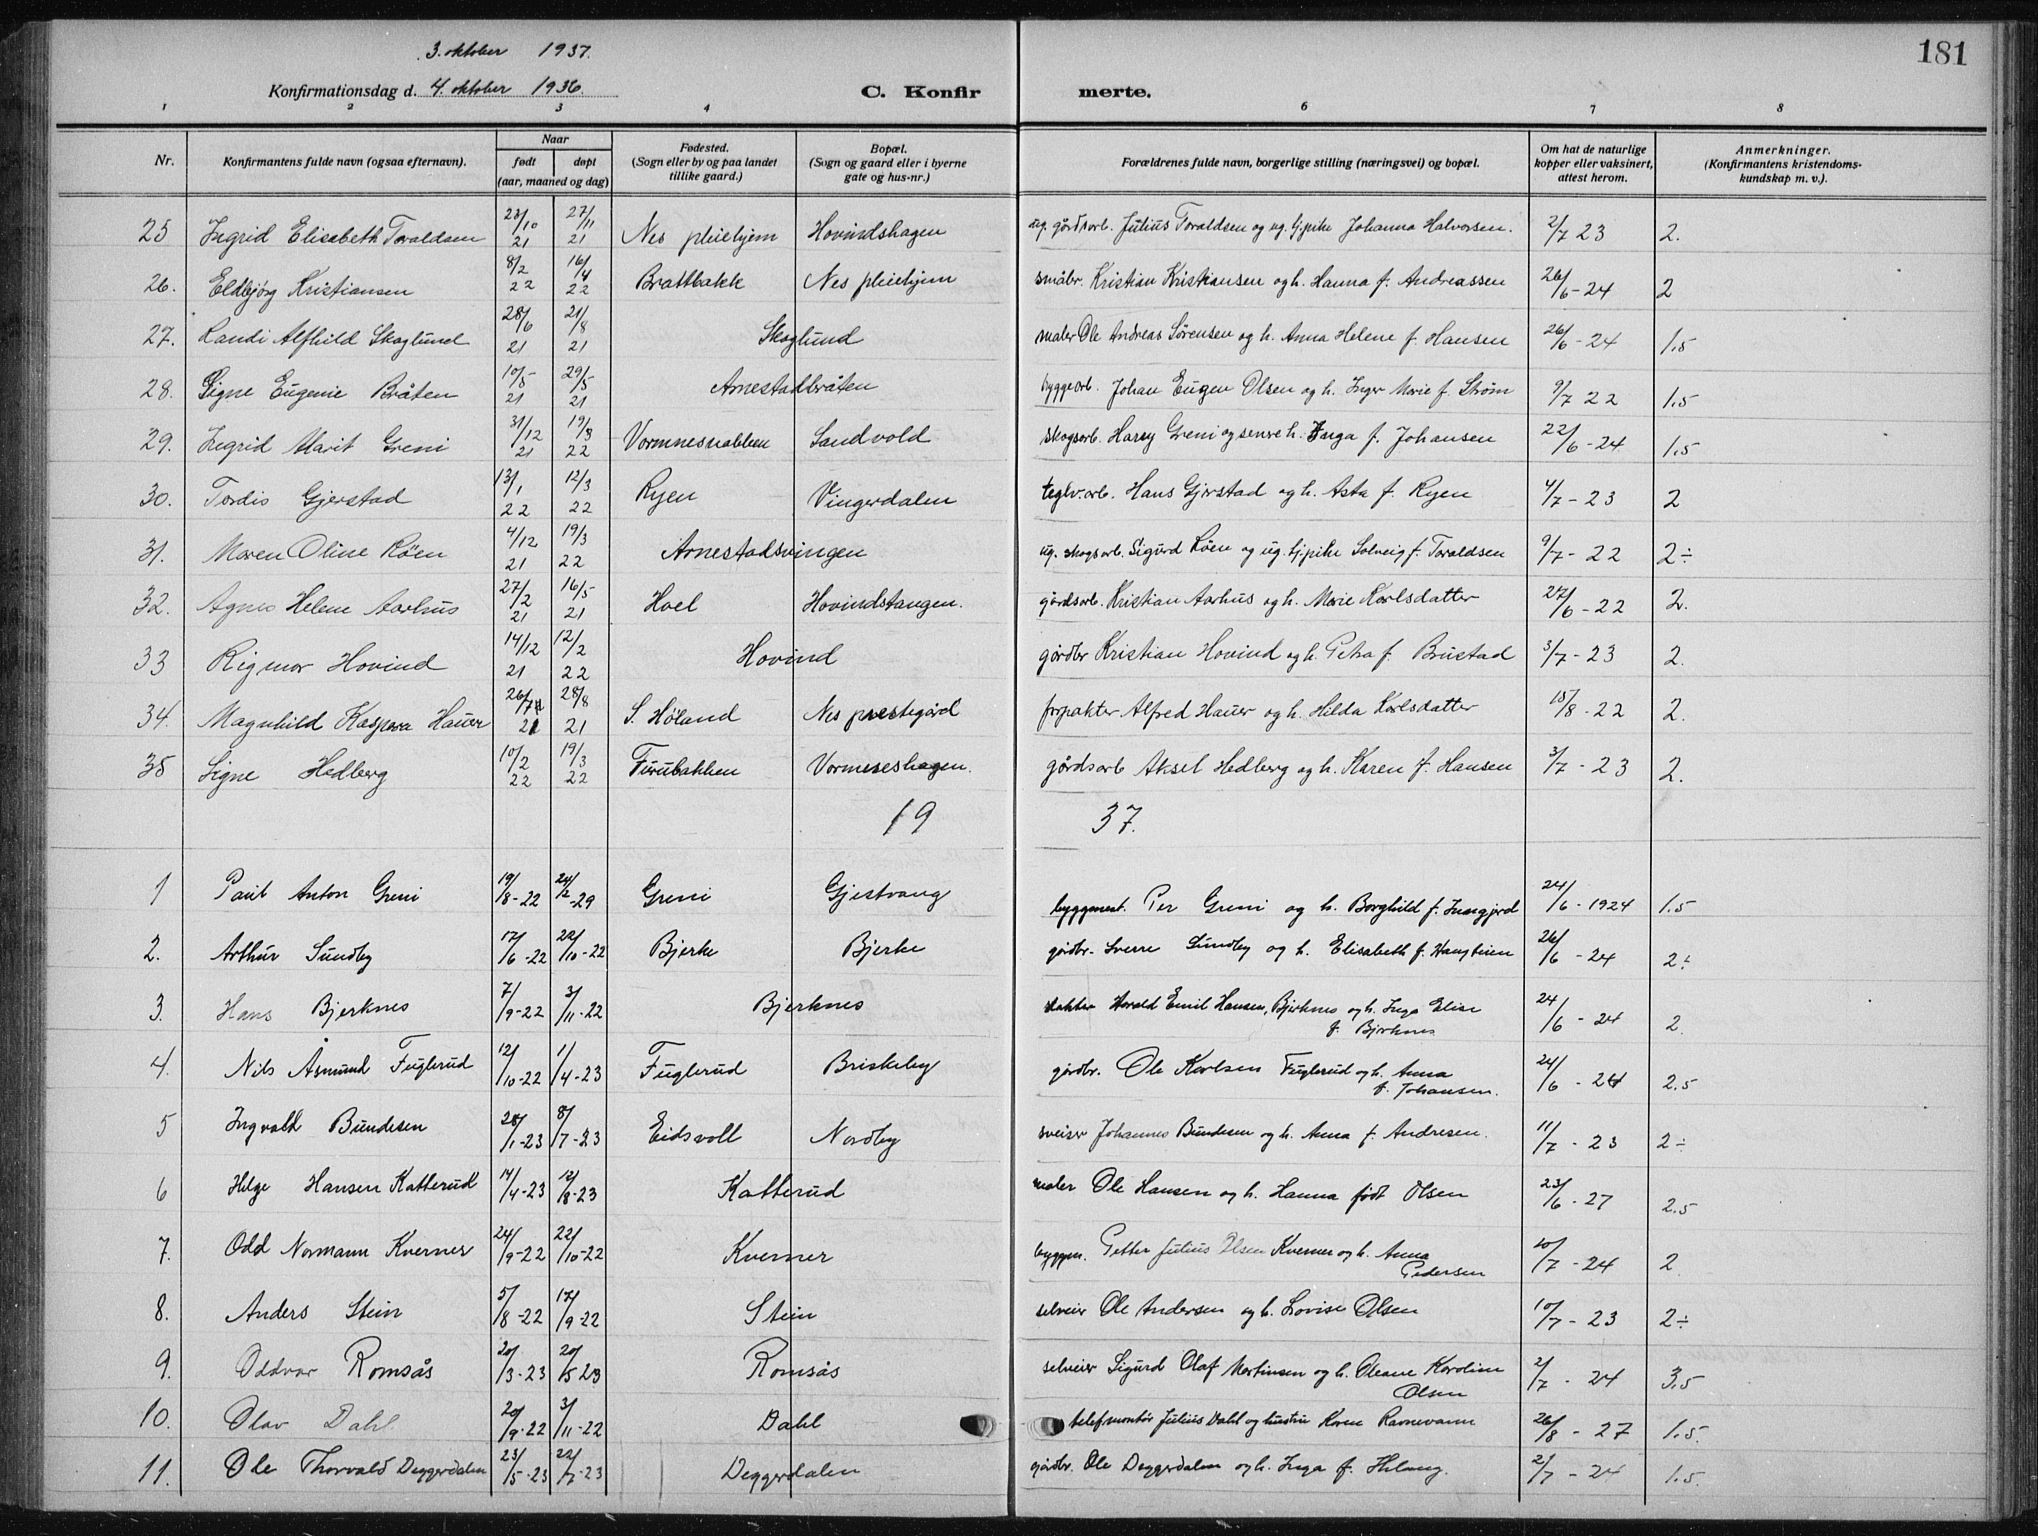 181
3. oktober 1937.
Konfirmationsdag d. 4. oktober 1936.
C. Konfirmerte.
1 2 3 4 6 7 8
Nr. | Konfirmantens fulde navn (ogsaa efternavn). | Naar født døpt (aar, maaned og dag) | Fødested. (Sogn eller by og paa landet tillike gaard.) | Bopæl. (Sogn og gaard eller i byerne gate og hus-nr.) | Forældrenes fulde navn, borgerlige stilling (næringsvei) og bopæl. | Om hat de naturlige kopper eller vaksinert, attest herom. | Anmerkninger. (Konfirmantens kristendoms-kundskap m. v.).
25 Ingrid Elisabeth Toraldsen 23/10 21 27/11 21 Nes pleiehjem Hovindshagen ug. gårdsarb. Julius Toraldsen og ug. tj.pike Johanna Halvorsen. 2/7 23 2.
26. Eldbjørg Kristiansen 8/2 22 16/4 22 Brattbakk Nes pleiehjem småbr. Kristian Kristiansen og h. Hanna f. Andreassen 26/6-24 2
27. Randi Alfhild Skoglund 28/6 21 21/8 21 Skoglund maler Ole Andreas Sørensen og h. Anna Helene f. Hansen 26/6-24 1.5
28. Signe Eugenie Bråten 10/5 21 29/5 21 Arnestadbråten byggearb. Johan Eugen Olsen og h. Inger Marie f. Strøm 9/7 22 1.5
29. Ingrid Marit Greni 31/12 21 19/3 22 Vormnesnabben Sandvold skogsarb. Harry Greni og senere h. Inga f. Johansen 22/6-24 1.5
30. Tordis Gjerstad 13/1 22 12/3 22 Ryen Vingerdalen teglv.arb. Hans Gjerstad og h. Asta f. Ryen 4/7-23 2
31. Maren Oline Røen 4/12 21 19/3 22 Arnestadsvingen ug. skogsarb. Sigurd Røen og ug. tj.pike Solveig f. Toraldsen 9/7-22 2÷
32. Agnes Helene Aarhus 27/2 21 16/5 21 Hoel Hovindstangen. gårdsarb. Kristian Aarhus og h. Marie Karlsdatter 27/6-22 2.
33 Rigmor Hovind 14/12 21 12/2 22 Hovind gårdbr Kristian Hovind og h. Petra f. Brustad 3/7-23 2.
34. Magnhild Kaspara Hauer 26/7 21 28/8 21 S. Høland Nes prestegård forpakter Alfred Hauer og h. Hilda Karlsdatter 18/8-22 2.
35 Signe Hedberg 10/2 22 19/3 22 Furubakken Vormneshagen. gårdsarb Aksel Hedberg og h. Karen f. Hansen 3/7-23 2.
19 37.
1 Paul Anton Greni 19/8-22 24/2-29 Greni Gjestvang byggmest. Per Greni og h. Borghild f. 24/6-1924 1.5
2. Arthur Sundby 17/6-22 22/10-22 Bjerke Bjerke gårdbr. Sverre Sundby og h. Elisabeth f. 26/6-24 2÷
3. Hans Bjerknes 7/9-22 3/11-22 Bjerknes Harald Emil Hansen, Bjerknes og h. Inga Elise
f. Bjerknes 24/6-24 2.
4. Nils Åsmund Fuglerud 12/10-22 1/4-23 Fuglerud Briskeby gårdbr. Ole Karlsen Fuglerud og h. Anna
f. Johansen. 24/6-24 2.5
5 Ingvald Bundesen 28/1-23 8/7-23 Eidsvoll Nordby sveiser Johannes Bundesen og h. Anna f. Andresen. 11/7-23 2÷
6 Helge Hansen Katterud 14/4-23 12/8-23 Katterud maler Ole Hansen og h. Hanna født Olsen 23/6-27 2.5
7. Odd Normann Kverner 24/9-22 22/10-22 Kverner byggm. Petter Julius Olsen Kverner og h. Anna
Pedersen 10/7-24 2
8. Anders Stein 5/8-22 17/9-22 Stein selveier Ole Andersen og h. Lovise Olsen 10/7-23 2÷
9. Oddvar Romsås 20/3-23 20/5 23 Romsås selveier Sigurd Olaf Martinsen og h. Oleane Karoline
Olsen 2/7-24 3.5
10. Olav Dahl 20/9-22 3/11-22 Dahl telefmontør Julius Dahl og hustru Karen Ravnevann 26/8-27 1.5.
11. Ole Thorvald Deggerdalen 23/5-23 22/7-23 Deggerdalen gårdbr. Ole Deggerdalen og h. Inga f. Helang. 2/7-24 1.5